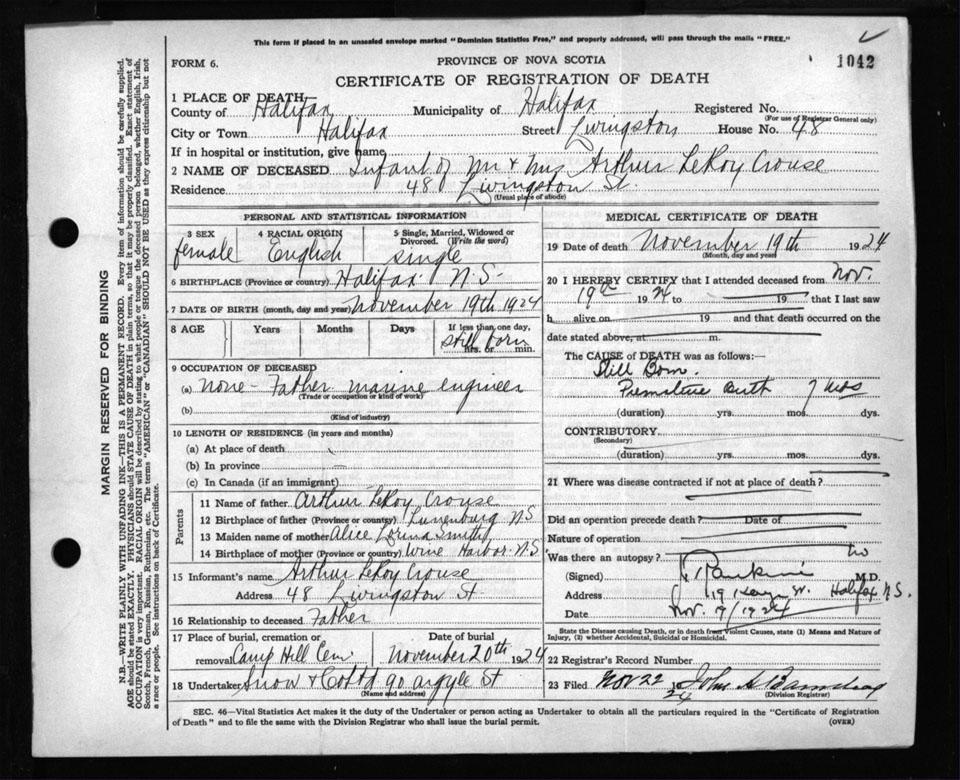 This form if placed in an unsealed envelope marked "Dominion Statistics Free," and properly addressed, will pass through the mails "FREE."
1042
FORM 6.
PROVINCE OF NOVA SCOTIA
CERTIFICATE OF REGISTRATION OF DEATH
1 PLACE OF DEATH—
County of Halifax Municipality of Halifax Registered No.
(For use of Registrar General only)
City or Town Halifax Street Livingston House No. 48
If in hospital or institution, give name
2 NAME OF DECEASED Infant of Mr & Mrs Arthur LeRoy Crouse
Residence 48 Livingston St.
(Usual place of abode)
PERSONAL AND STATISTICAL INFORMATION
3 SEX female
4 RACIAL ORIGIN English
5 Single, Married, Widowed or Divorced. (Write the word) single
6 BIRTHPLACE (Province or country) Halifax N.S.
7 DATE OF BIRTH (month, day and year) November 19th 1924
8 AGE Years Months Days If less than one day, hrs. or min. still born
9 OCCUPATION OF DECEASED
(a) none - Father marine engineer
(Trade or occupation or kind of work)
(b)
(Kind of industry)
10 LENGTH OF RESIDENCE (in years and months)
(a) At place of death
(b) In province —
(c) In Canada (if an immigrant)
Parents
11 Name of father Arthur LeRoy Crouse
12 Birthplace of father (Province or country) Lunenburg N S
13 Maiden name of mother Alice Smith
14 Birthplace of mother (Province or country) Wine Harbor N.S.
15 Informant's name Arthur LeRoy Crouse
Address 48 Livingston St
16 Relationship to deceased Father
17 Place of burial, cremation or removal Camp Hill Cem
Date of burial November 20th 1924
18 Undertaker Snow & Co Ltd 90 Argyle St
(Name and address)
MEDICAL CERTIFICATE OF DEATH
19 Date of death November 19th 1924
(Month, day and year)
20 I HEREBY CERTIFY that I attended deceased from Nov.
19th 1924 to 19 that I last saw
h alive on 19 and that death occurred on the
date stated above, at m.
The CAUSE of DEATH was as follows:
Still Born.
Premature Birth 7 mos
(duration) yrs. mos. dys.
CONTRIBUTORY
(Secondary)
(duration) yrs. mos. dys.
21 Where was disease contracted if not at place of death?
Did an operation precede death? Date of
Nature of operation
Was there an autopsy? no
(Signed) Rankine M.D.
Address 19 St. Halifax N.S.
Date Nov. 19/1924
State the Disease causing Death, or in death from Violent Causes, state (1) Means and Nature of Injury, (2) whether Accidental, Suicidal or Homicidal.
22 Registrar's Record Number
23 Filed Nov 22 1924 John A
(Division Registrar)
SEC. 46—Vital Statistics Act makes it the duty of the Undertaker or person acting as Undertaker to obtain all the particulars required in the "Certificate of Registration
of Death" and to file the same with the Division Registrar who shall issue the burial permit. (OVER)
MARGIN RESERVED FOR BINDING
N.B.—WRITE PLAINLY WITH UNFADING INK—THIS IS A PERMANENT RECORD. Every item of information should be carefully supplied.
AGE should be stated EXACTLY. PHYSICIANS should STATE CAUSE OF DEATH in plain terms, so that it may be properly classified. Exact statement of
OCCUPATION is very important. RACIAL ORIGIN will be described by stating to what people or tongue the deceased person belonged, whether English, Irish,
Scotch, French, German, Russian, Ruthenian, etc. The terms "AMERICAN" or "CANADIAN" SHOULD NOT BE USED as they express citizenship but not
a race or people. See instructions on back of Certificate.